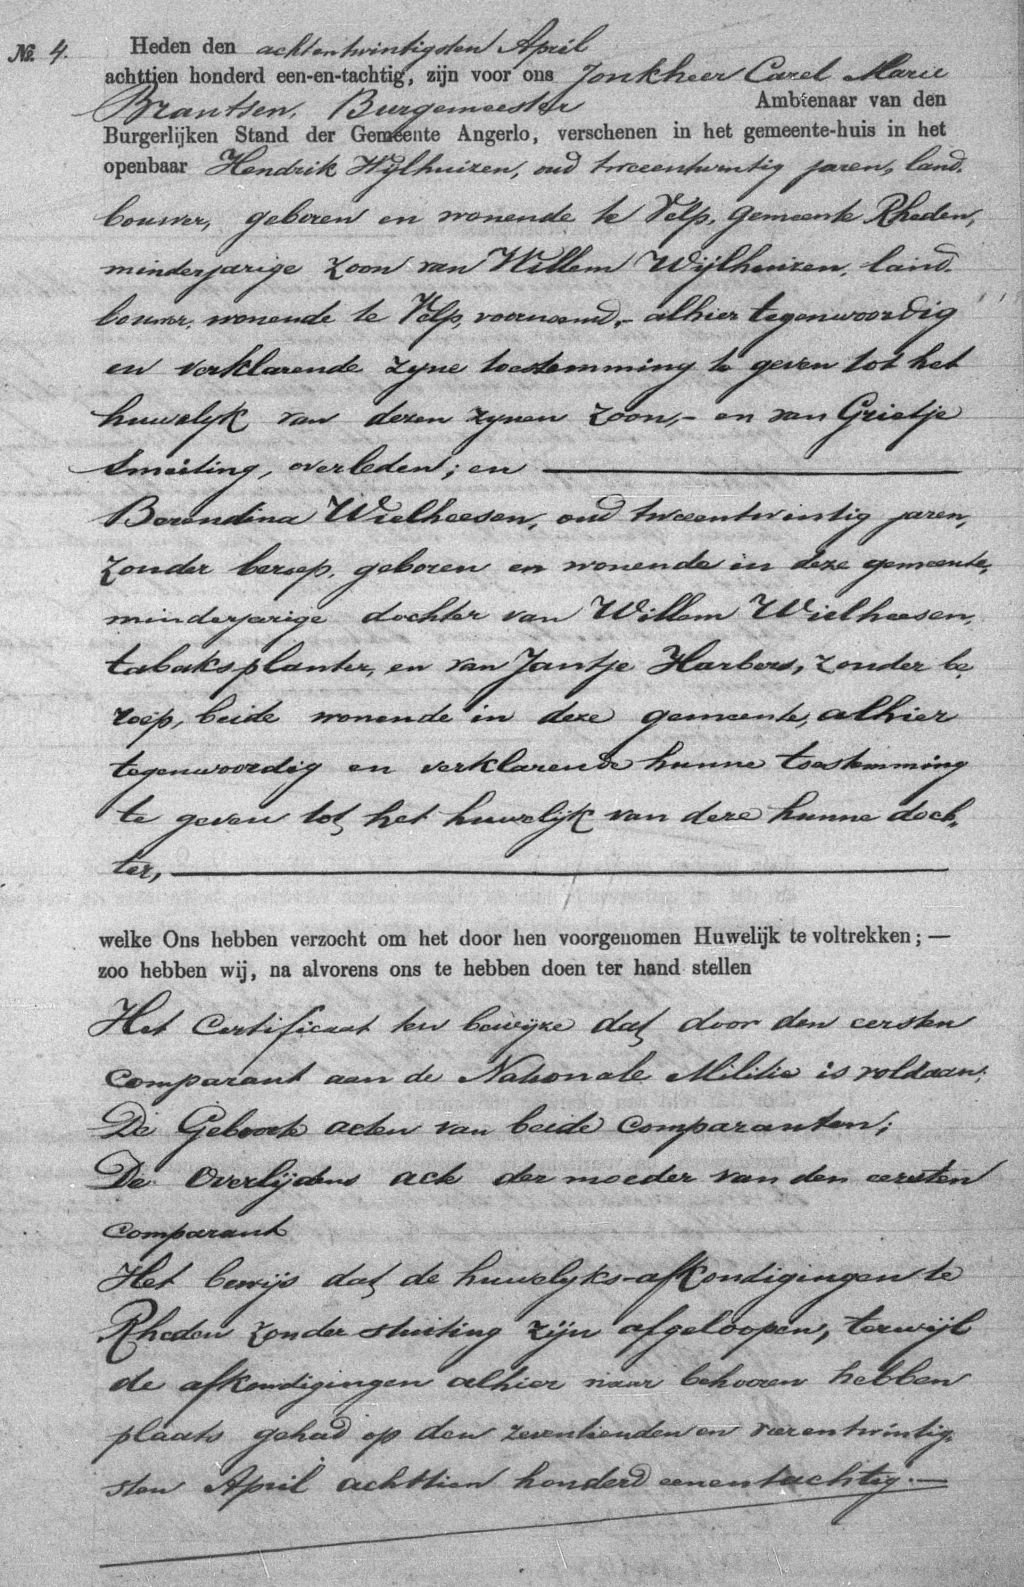 No. 4. Heden den achtentwintigsten April
achttien honderd een-en-tachtig, zijn voor ons Jonkheer Carel Marie
Brantsen, Burgemeester Ambtenaar van den
Burgerlijken Stand der Gemeente Angerlo, verschenen in het gemeente-huis in het
openbaar Hendrik Wijlhuizen, oud tweeentwintig jaren, land-
bouwer, geboren en wonende te Velp, gemeente Rheden,
minderjarige zoon van Willem Wijlhuizen, land-
bouwer, wonende te Velp, voornoemd,- alhier tegenwoordig
en verklarende zyne toestemming te geven tot het
huwelyk van dezen zynen zoon,- en van Grietje
Smeiting, overleden; en
Berendina Wielheesen, oud tweeentwintig jaren,
zonder beroep, geboren en wonende in deze gemeente,
minderjarige dochter van Willem Wielheesen,
tabaksplanter, en van Jantje Harbers, zonder be-
roep, beide wonende in deze gemeente, alhier
tegenwoordig en verklarende hunne toestemming
te geven tot het huwelijk van deze hunne doch-
ter,
welke Ons hebben verzocht om het door hen voorgenomen Huwelijk te voltrekken; —
zoo hebben wij, na alvorens ons te hebben doen ter hand stellen
Het Certificaat ten bewijze dat door den eersten
comparant aan de Nationale Militie is voldaan;
De Geboorte acten van beide comparanten;
De Overlijdens acte der moeder van den eersten
comparant
Het bewijs dat de huwelyks-afkondigingen te
Rheden zonder stuiting zijn afgeloopen, terwijl
de afkondigingen alhier naar behooren hebben
plaats gehad op den zeventienden en vierentwintig-
sten April achttien honderd eenentachtig.—